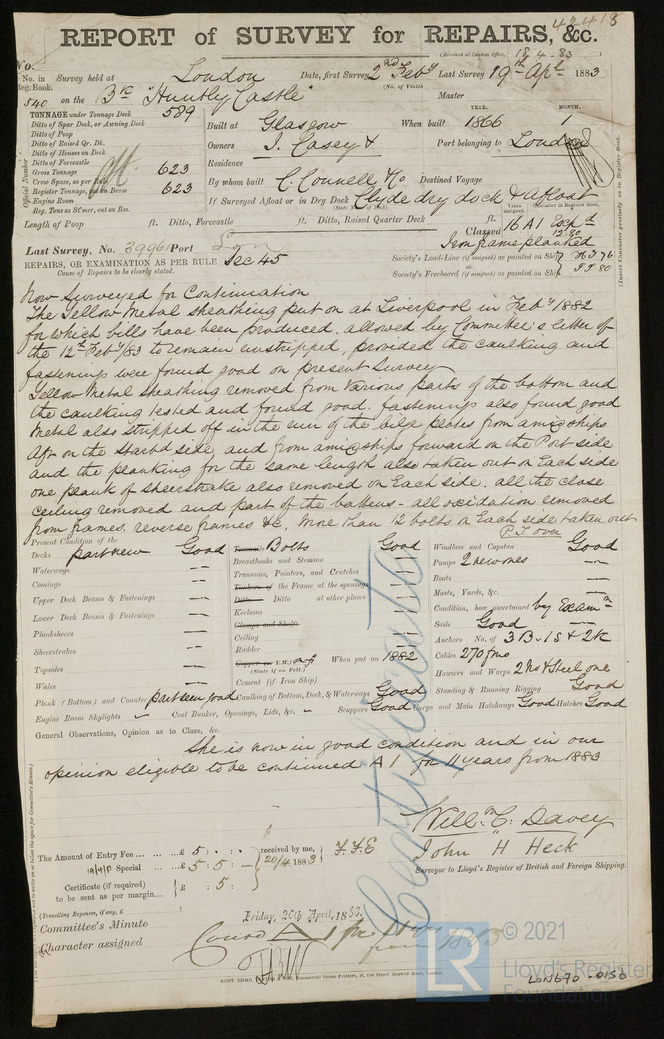 42418
REPORT of SURVEY for REPAIRS, &c.
(Received at London Office, 18.4.83)
No.
No. in Reg. Book. Survey held at London Date, first Survey 2nd Feby Last Survey 19th Apl 1883
(No. of Visits)
540 on the Bk "Huntly Castle" Master
TONNAGE under Tonnage Deck 589
Ditto of Spar Deck, or Awning Deck
Ditto of Poop
Ditto of Raised Qr. Dk.
Ditto of Houses on Deck
Ditto of Forecastle
Gross Tonnage 623
Crew Space, as per
Register Tonnage, cut on Beam 623
Engine Room
Reg. Tons as St'mer, cut on Bm.
Official Number
YEAR. MONTH.
Built at Glasgow When built 1866 1
Owners J. Casey & Port belonging to London
Residence
By whom built C. Connell & Co Destined Voyage
If Surveyed Afloat or in Dry Dock Clyde dry dock & afloat
(State name of Dock)
Length of Poop ft. Ditto, Forecastle ft. Ditto, Raised Quarter Deck ft.
Years assigned. Character in Register Book.
Classed 16 A1 Expd 12.80
Iron frame planked
Last Survey, No. 39961 Port Lon
REPAIRS, OR EXAMINATION AS PER RULE Sec 45
Cause of Repairs to be clearly stated.
Society's Load-Line (if assigned) as painted on Ship
Society's Freeboard (if assigned) as painted on Ship
(Insert Character precisely as in Register Book.
Now Surveyed for Continuation
The Yellow Metal sheathing put on at Liverpool in Feby 1882
for which bills have been produced, allowed by Committee's letter of
the 12th Feby/83 to remain unstripped, provided the caulking and
fastenings were found good on present Survey
Yellow Metal sheathing removed from various parts of the bottom and
the caulking tested and found good. fastenings also found good
Metal also stripped off in the run of the bilge plates from amidships
Aft on the starbd side, and from amidships forward on the Port side
and the planking for the same length also taken out on Each side
one plank of sheerstrake also removed on Each side. all the close
ceiling removed and part of the battens - all oxidation removed
from frames, reverse frames &c. More than 12 bolts on Each side taken out
P.T over
Present Condition of the
Decks part new Good
Waterways
Comings
Upper Deck Beams & Fastenings
Lower Deck Beams & Fastenings
Planksheers
Sheerstrakes
Topsides
Wales
Plank (Bottom) and Counter part seen good
Engine Room Skylights
Treenails Bolts Good
Breasthooks and Stemson
Transoms, Pointers, and Crutches
Timbers of the Frame at the openings
Ditto Ditto at other places
Keelsons
Clamps and Shelfs
Ceiling
Rudder
Copper or Y.M. When put on 1882
(State if on Felt.)
Cement (if Iron Ship)
Caulking of Bottom, Deck, & Waterways Good
Coal Bunker, Openings, Lids, &c. - Scuppers Good Cargo and Main Hatchways Good Hatches Good
Windlass and Capstan Good
Pumps 2 new ones
Boats
Masts, Yards, &c.
Condition, how ascertained by Examn
Sails Good
Anchors No. of 3B. 1S & 2K
Cables 270 fms
Hawsers and Warps
Standing & Running Rigging Good
General Observations, Opinion as to Class, &c.
She is now in good condition and in our
opinion eligible to be continued A1 for 11 years from 1883
Certificate
Willm. C. Davey
John H Heck
Surveyor to Lloyd's Register of British and Foreign Shipping.
The Amount of Entry Fee ... ... £ 5 : - : received by me, F.F.E
Special ... £ 5 : 5 : - 20/4 1883
Certificate (if required) £ : 5 :
to be sent as per margin...
(Travelling Expenses, if any, £
Committee's Minute Friday, 20th April, 1883.
Character assigned Contd A1 for 11 yrs
from 1883
© 2021
LR
Lloyd's Register
Foundation
LON670-0150